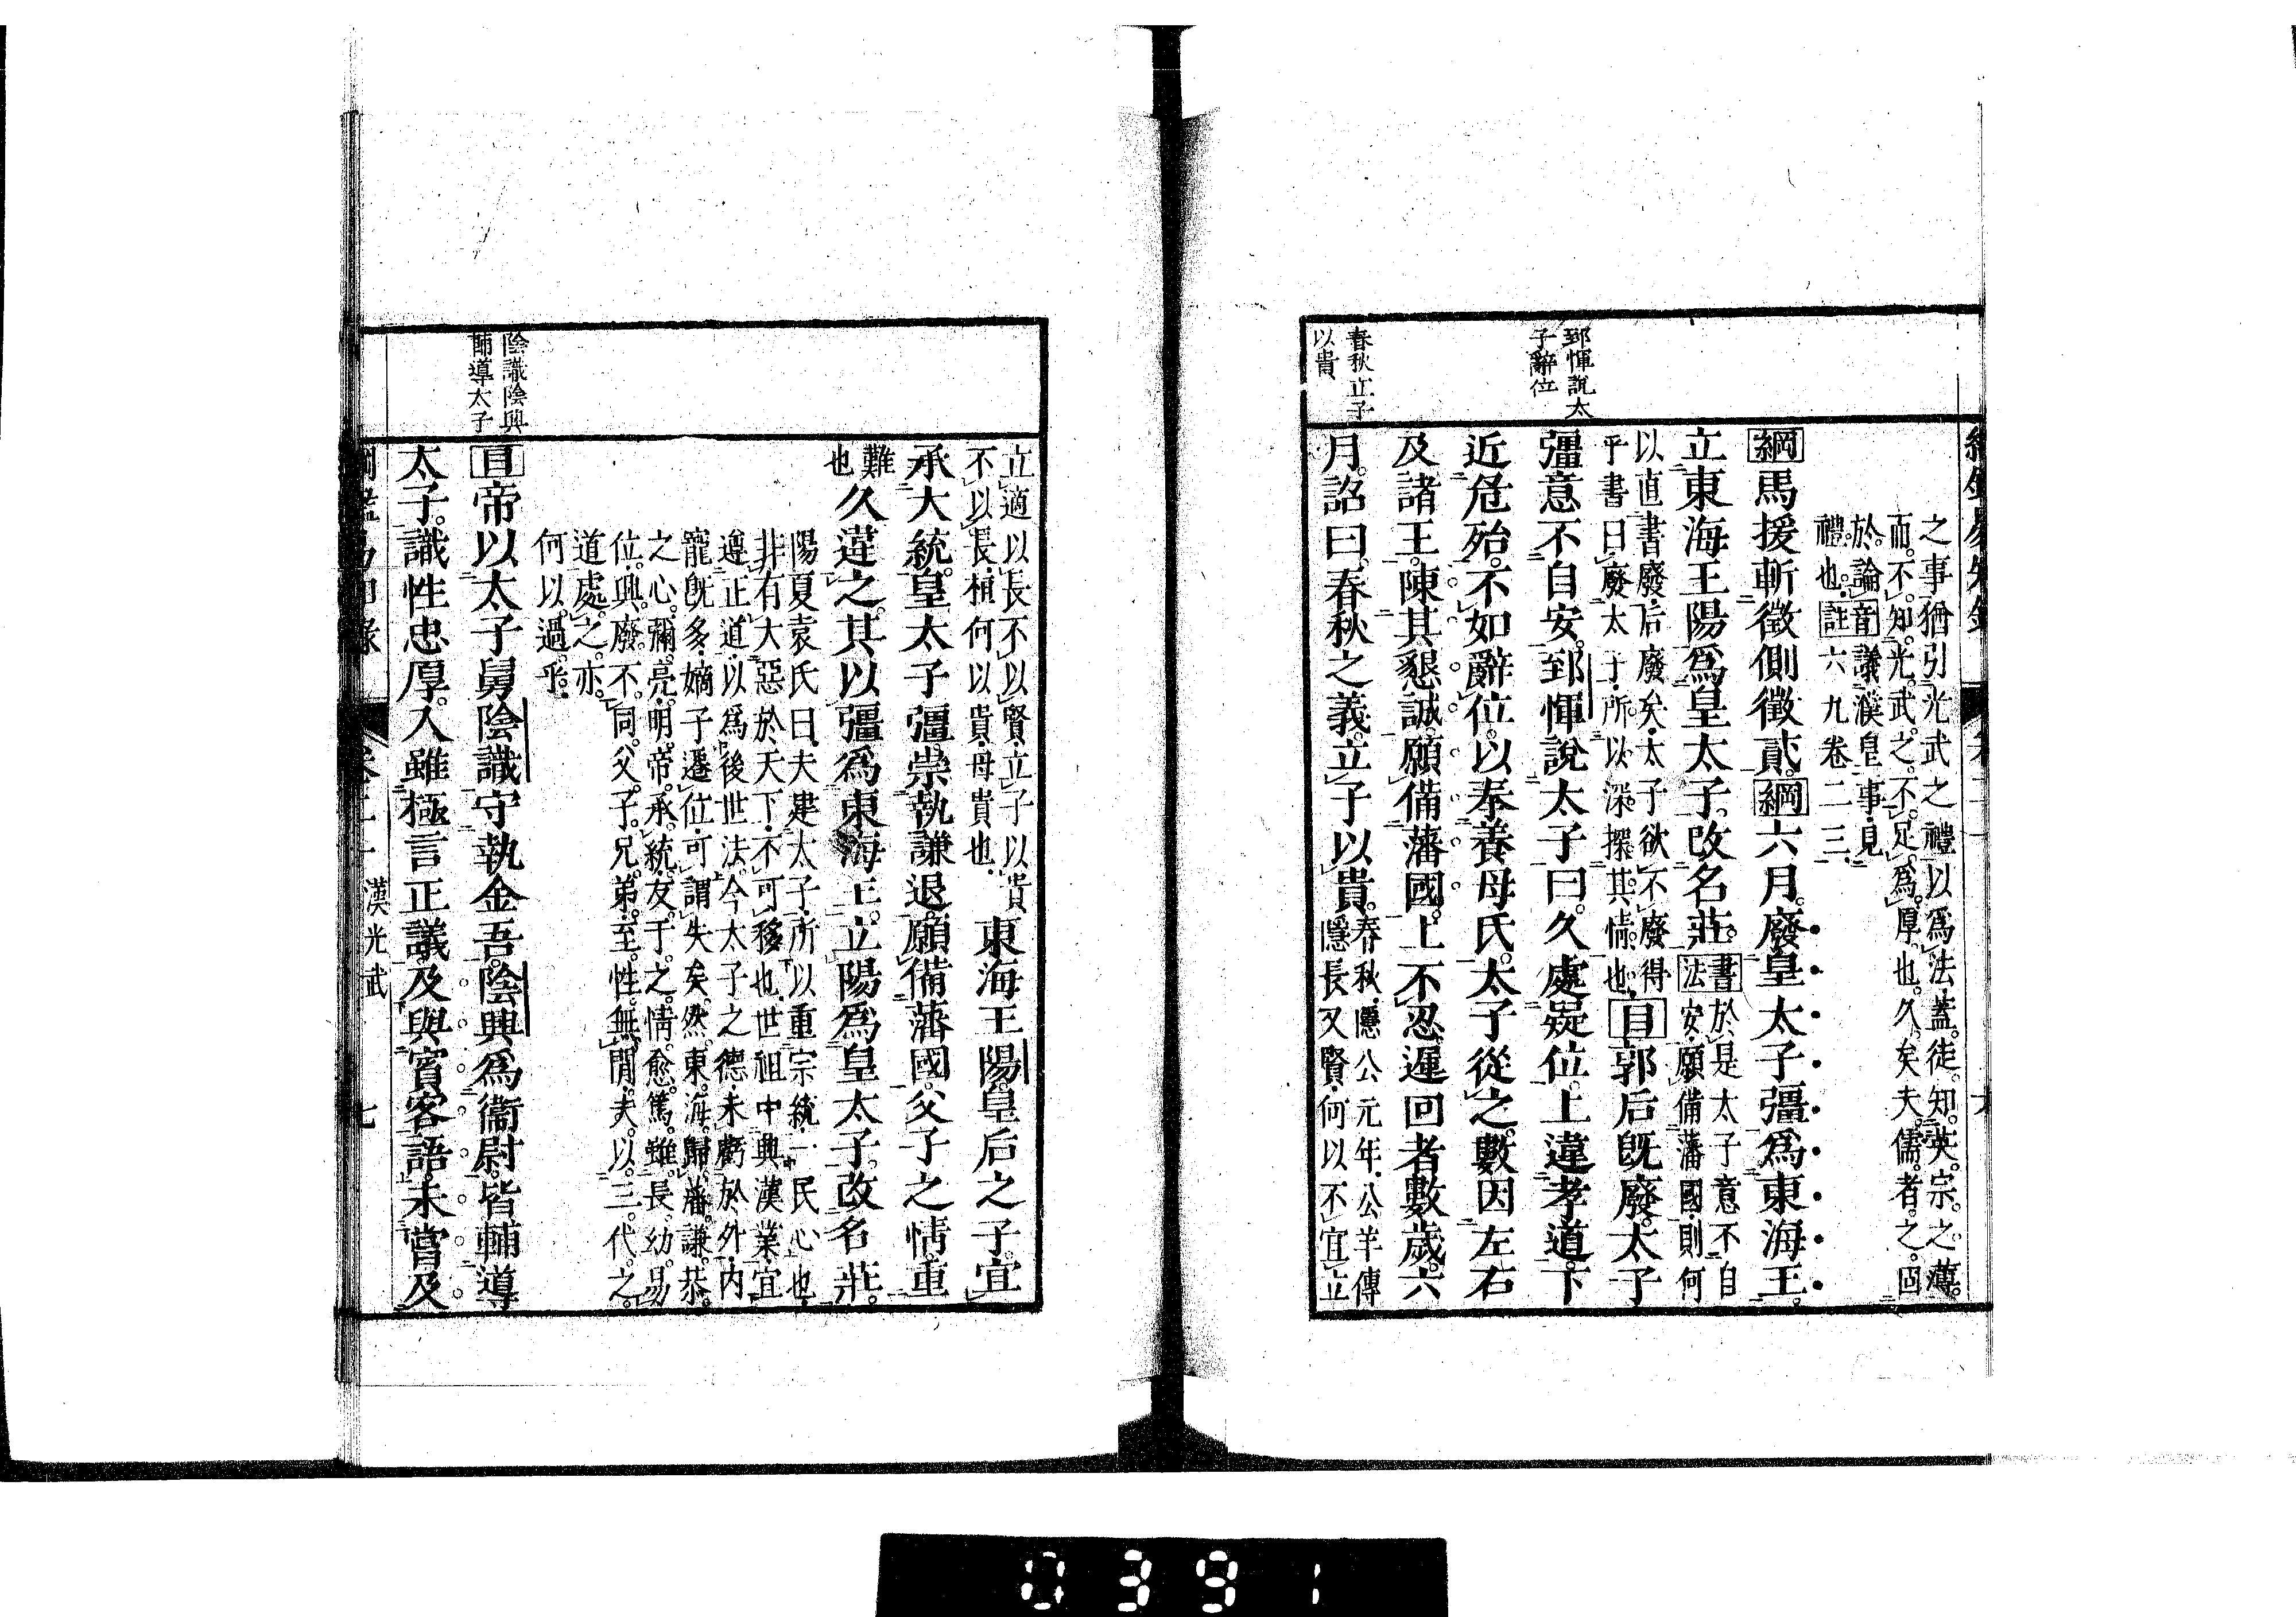 郅惲說太
子辭位
春秋立子
以貴
之事猶引光武之禮以爲法蓋徒知英宗之薄。
而不知光武之不足爲厚也久矣夫儒者之固
於論音議濮皇事見
禮也註六九卷二三
綱馬援斬徵側徵貳。綱六月。廢皇太子彊爲東海王。
立東海王陽爲皇太子。改名莊。書於是太子意不自
法安願備藩國則何
以直書廢后廢矣太子欲不廢得
乎書曰廢太子所以深探其情也目郭后旣廢。太子
彊意不自安。郅惲說太子曰。久處疑位。上違孝道。下
近危殆。不如辭位。以奉養母氏。太子從之。數因左右
及諸王。陳其懇誠。願備藩國。上不忍。遲回者數歲。六
月。詔曰。春秋之義。立子以貴。春秋隱公元年公羊傳
隱長又賢何以不宜立
立適以長不以賢立子以貴
不以長桓何以貴母貴也東海王陽。皇后之子。宜
承大統。皇太子彊。崇執謙退。願備藩國。父子之情。重
難
也久違之。其以彊爲東海王。立陽爲皇太子。改名莊。
陽夏袁氏曰夫建太子所以重宗統一民心也
非有大惡於天下不可移也世祖中興漢業宜
遵正道以爲後世法今太子之德未虧於外內
寵旣多嫡子遷位可謂失矣然東海歸藩謙恭
之心彌亮明帝承統友于之情愈篤雖長幼易
位興廢不同父子兄弟至性無間夫以三代之
道處之亦
何以過乎
陰識陰興
輔導太子
目帝以太子舅陰識守執金吾。陰興爲衞尉。皆輔導
太子。識性忠厚。入雖極言正議。及與賓客語。未嘗及
漢光武 七
0391